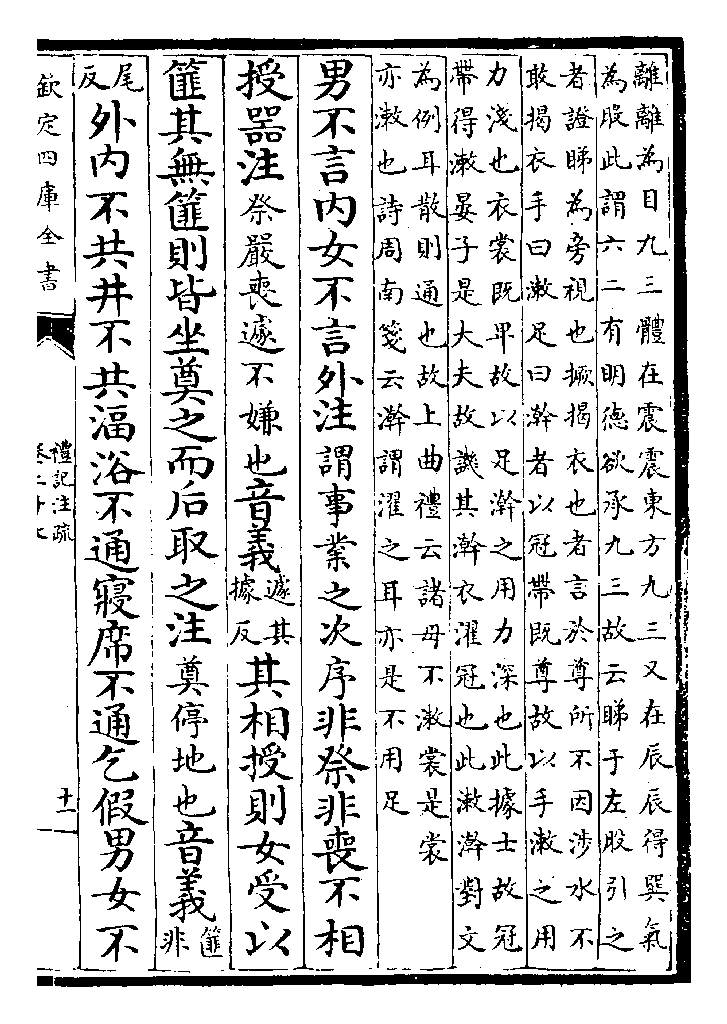 離離為目九三體在震震東方九三又在辰辰得巽氣
為股此謂六二有明德欲承九三故云睇于左股引之
者證睇為旁視也撅揭衣也者言於尊所不因涉水不
敢揭衣手曰漱足曰澣者以冠帶既尊故以手漱之用
力淺也衣裳既卑故以足澣之用力深也此據士故冠
帶得漱晏子是大夫故譏其澣衣濯冠也此漱澣對文
為例耳散則通也故上曲禮云諸母不漱裳是裳
亦漱也詩周南箋云澣謂濯之耳亦是不用足
男不言内女不言外注謂事業之次序非祭非喪不相
授器注祭嚴喪遽不嫌也音義遽其據反其相授則女受以
篚其無篚則皆坐奠之而后取之注奠停地也音義篚非
尾反外内不共井不共湢浴不通寢席不通乞假男女不
欽定四庫全書
禮記注疏
十一